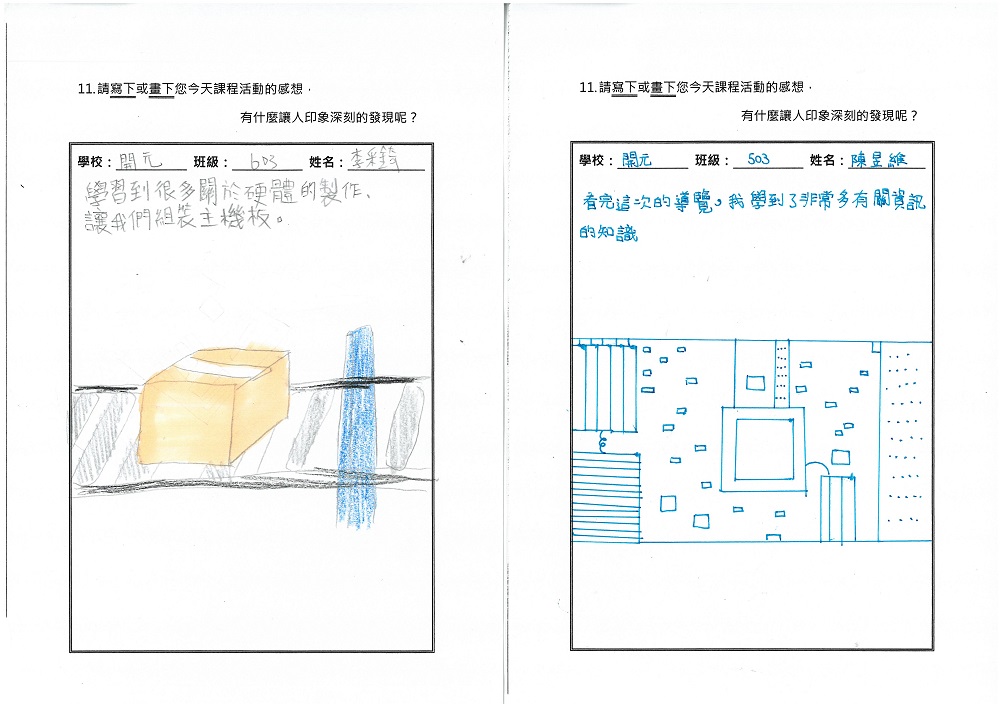 11.請寫下或畫下您今天課程活動的感想，
有什麼讓人印象深刻的發現呢？
學校：開元 班級：603 姓名：李采錡
學習到很多關於硬體的製作、
讓我們組裝主機板。
11.請寫下或畫下您今天課程活動的感想，
有什麼讓人印象深刻的發現呢？
學校：開元 班級：503 姓名：陳昱維
看完這次的導覽，我學到了非常多有關資訊
的知識